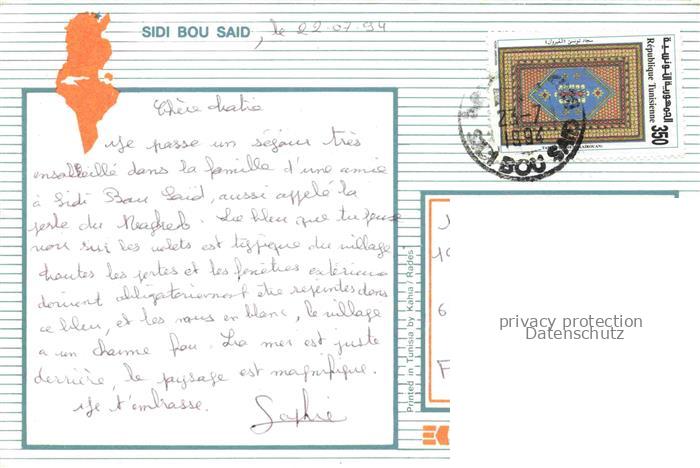 SIDI BOU SAID, le 22.07.94
Chère Katia
Je passe un séjour très
ensoleillé dans la famille d'une amie
à Sidi Bou Saïd, aussi appelé la
perle du Maghreb. Le bleu que tu peux
voir sur les volets est typique du village
toutes les portes et les fenêtres extérieures
doivent obligatoirement être repeintes dans
ce bleu, et les murs en blanc, le village
a un charme fou. La mer est juste
derrière, le paysage est magnifique.
Je t'embrasse.
Sophie
Printed in Tunisia by Kahia / Rades
الجمهورية التونسية
République Tunisienne
350
23-7
1994
BOU SAID
privacy protection
Datenschutz